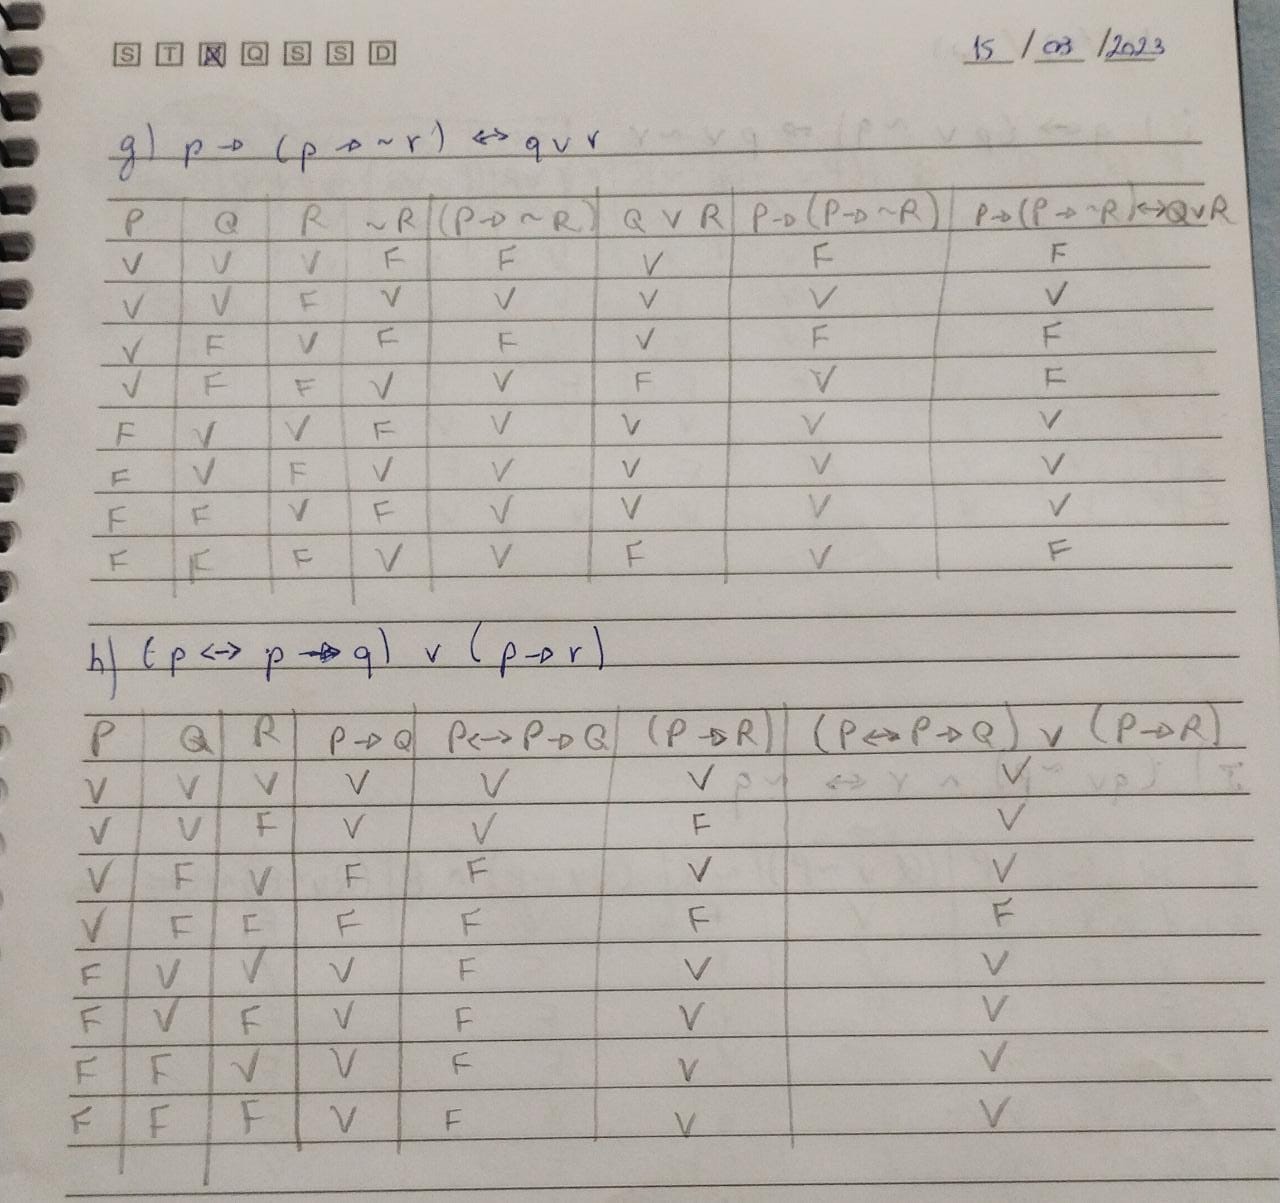 S T Q Q S S D 15 / 03 / 2023
g) p → (p → ~r) ↔ q v r
P Q R ~R (P→~R) Q V R P→(P→~R) P→(P→~R)↔QvR
V V V F F V F F
V V F V V V V V
V F V F F V F F
V F F V V F V F
F V V F V V V V
F V F V V V V V
F F V F V V V V
F F F V V F V F
h) (p ↔ p → q) v (p → r)
P Q R P→Q P↔P→Q (P→R) (P↔P→Q) v (P→R)
V V V V V V V
V V F V V F V
V F V F F V V
V F F F F F F
F V V V F V V
F V F V F V V
F F V V F V V
F F F V F V V